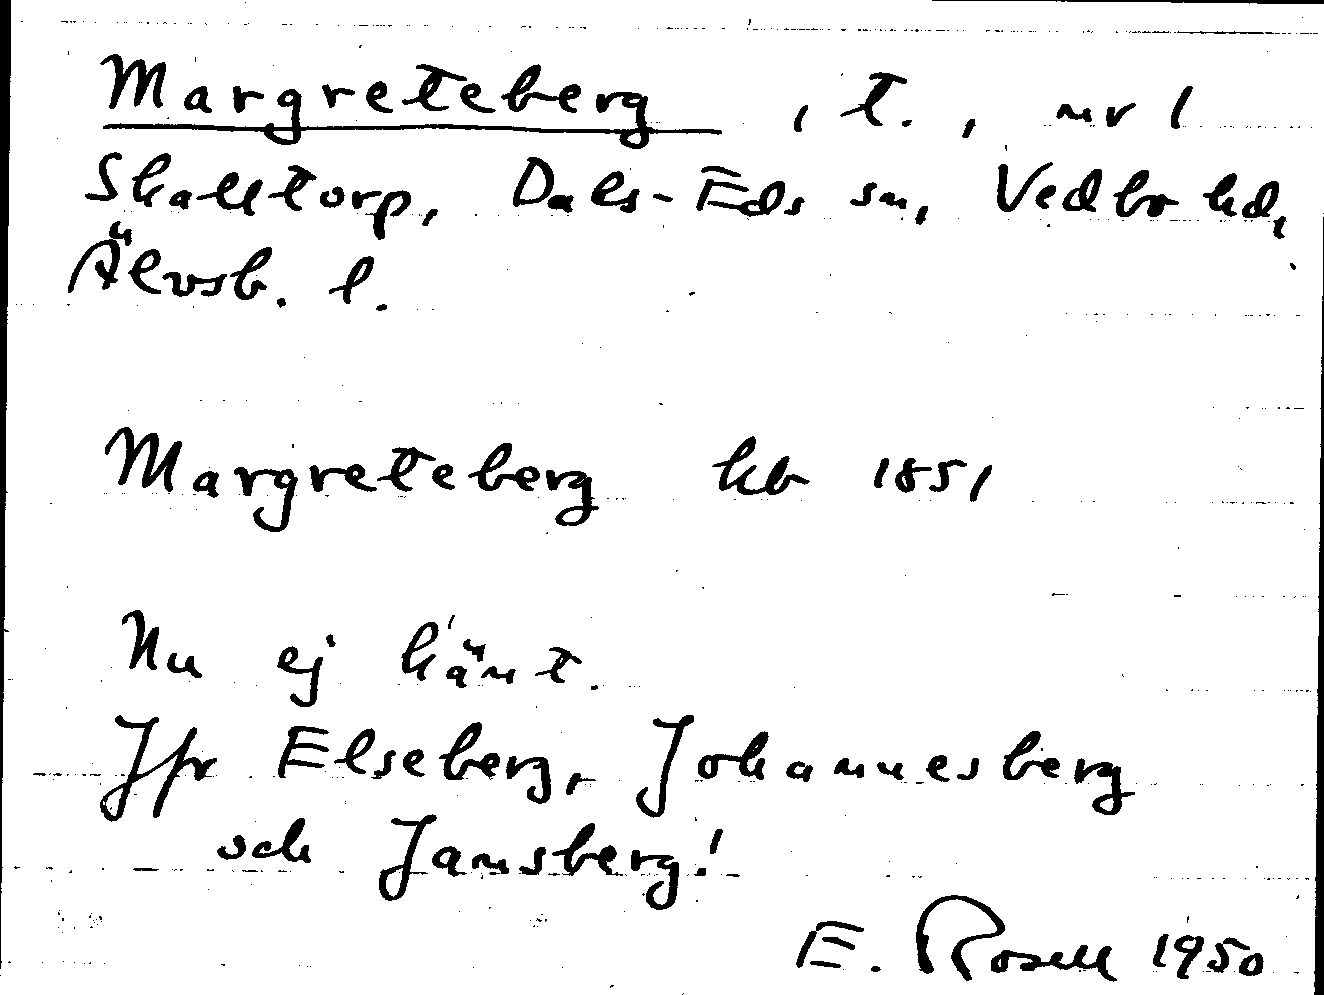 Margreteberg, t., nr 1
Skalltorp, Dals-Eds sn, Vedbo hd,
Älvsb. l.
Margreteberg kb 1851
Nu ej känt.
Jfr Elseberg, Johannesberg
och Jansberg!
E. Rosell 1950